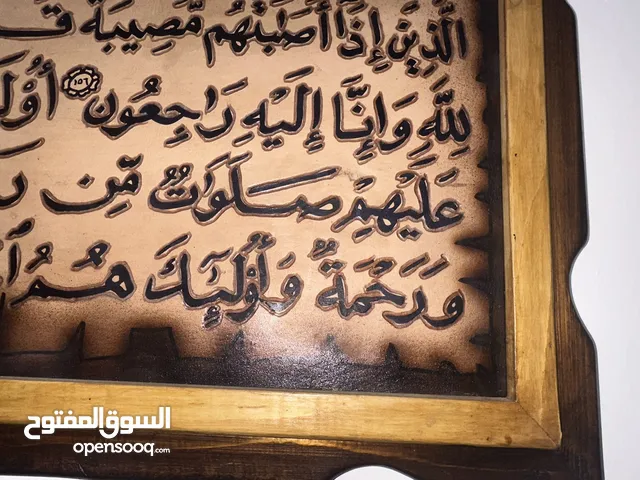 الَّذِينَ إِذَا أَصَابَتْهُم مُّصِيبَةٌ
لِلَّهِ وَإِنَّا إِلَيْهِ رَاجِعُونَ ١٥٦
عَلَيْهِمْ صَلَوَاتٌ مِّن
وَرَحْمَةٌ وَأُولَٰئِكَ هُمُ
السوق المفتوح
opensooq.com